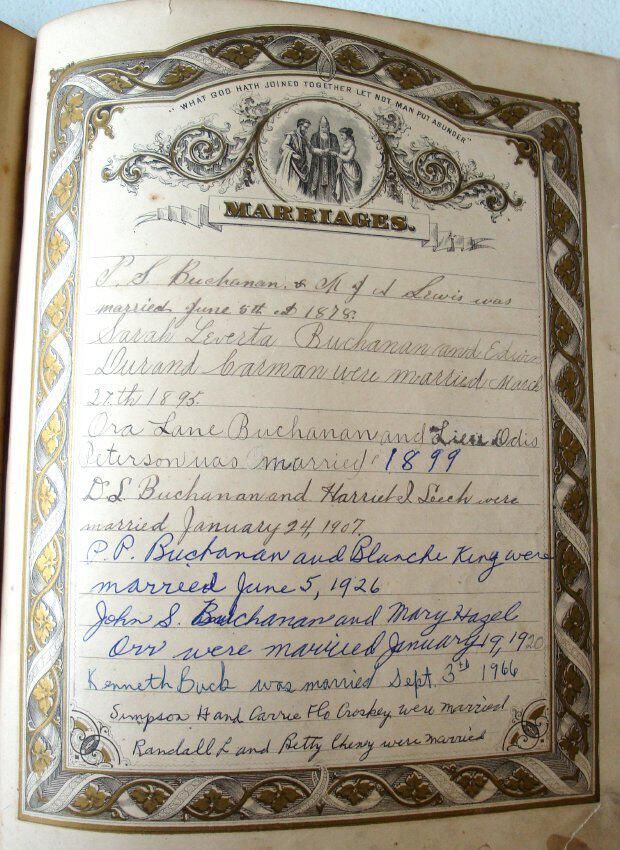 "WHAT GOD HATH JOINED TOGETHER LET NOT MAN PUT ASUNDER"
MARRIAGES.
P. S. Buchanan. & M J A Lewis was
married June 5th 1878.
Sarah Leverta Buchanan and Edwin
Durand Carman were married March
27th 1895.
Ora Lane Buchanan and Odis
Peterson was married 1899
D. L. Buchanan and Harriet J. Leech were
married January 24, 1907.
P. P. Buchanan and Blanche King were
married June 5, 1926
John S. Buchanan and Mary Hazel
Orr were married January 19, 1920
Kenneth Buck was married Sept. 3rd 1966
Simpson H and Carrie Flo Croskey were married
Randall L and Betty Cheny were married